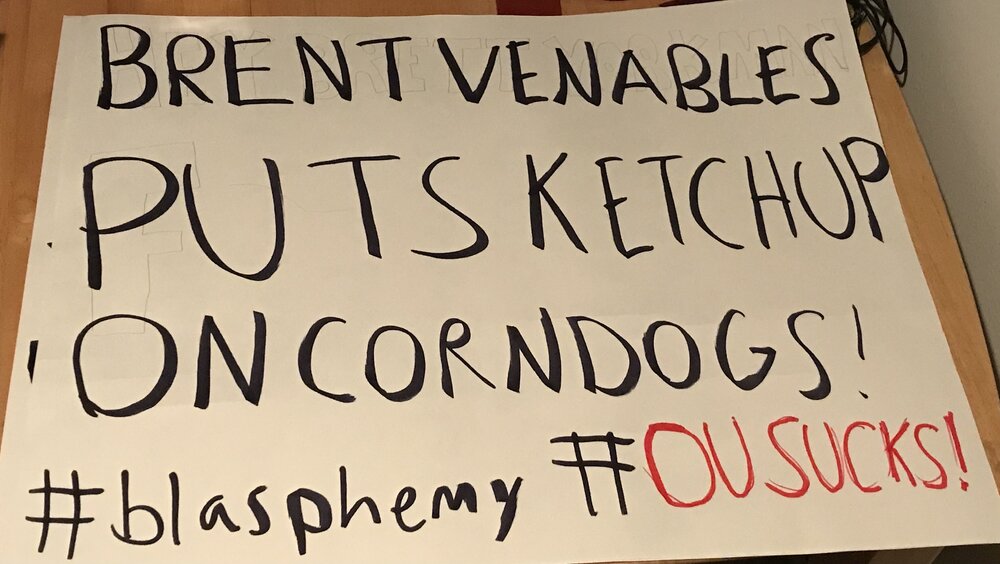 BRENT VENABLES
PUTS KETCHUP
ON CORNDOGS!
#blasphemy #OU SUCKS!